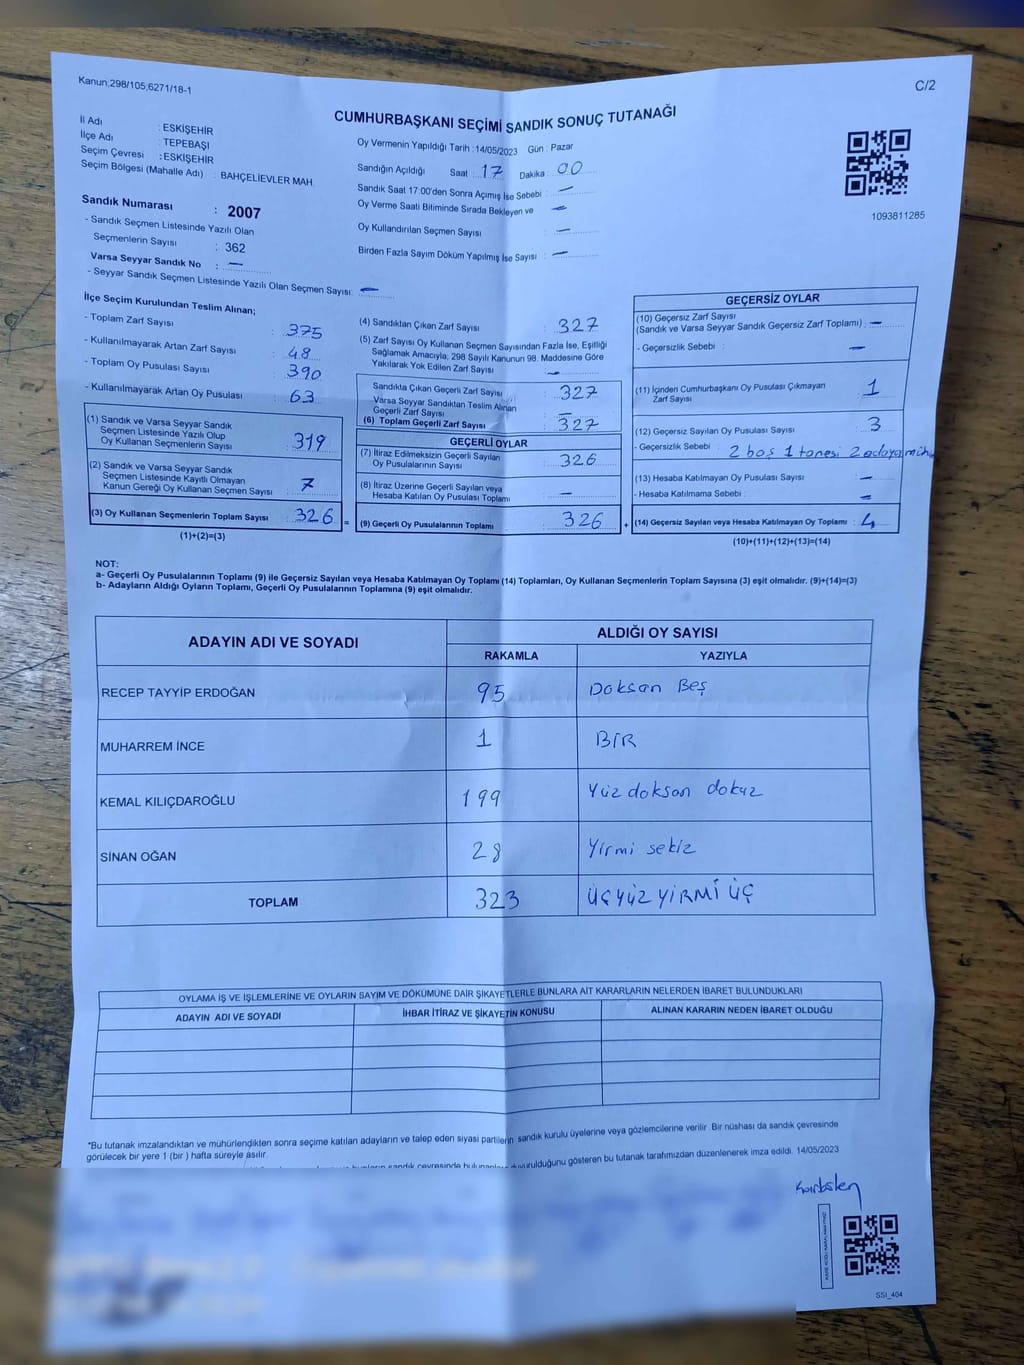 Kanun;298/105,6271/18-1
C/2
CUMHURBAŞKANI SEÇİMİ SANDIK SONUÇ TUTANAĞI
İl Adı : ESKİŞEHİR
İlçe Adı : TEPEBAŞI
Seçim Çevresi : ESKİŞEHİR
Seçim Bölgesi (Mahalle Adı) : BAHÇELİEVLER MAH.
Sandık Numarası : 2007
- Sandık Seçmen Listesinde Yazılı Olan
Seçmenlerin Sayısı : 362
Varsa Seyyar Sandık No : —
- Seyyar Sandık Seçmen Listesinde Yazılı Olan Seçmen Sayısı: —
Oy Vermenin Yapıldığı Tarih : 14/05/2023 Gün : Pazar
Sandığın Açıldığı Saat : 17 Dakika : 00
Sandık Saat 17:00'den Sonra Açımış İse Sebebi : —
Oy Verme Saati Bitiminde Sırada Bekleyen ve —
Oy Kullandırılan Seçmen Sayısı : —
Birden Fazla Sayım Döküm Yapılmış İse Sayısı : —
1093811285
İlçe Seçim Kurulundan Teslim Alınan;
- Toplam Zarf Sayısı : 375
- Kullanılmayarak Artan Zarf Sayısı : 48
- Toplam Oy Pusulası Sayısı : 390
- Kullanılmayarak Artan Oy Pusulası : 63
(1) Sandık ve Varsa Seyyar Sandık
Seçmen Listesinde Yazılı Olup
Oy Kullanan Seçmenlerin Sayısı : 319
(2) Sandık ve Varsa Seyyar Sandık
Seçmen Listesinde Kayıtlı Olmayan
Kanun Gereği Oy Kullanan Seçmen Sayısı : 7
(3) Oy Kullanan Seçmenlerin Toplam Sayısı : 326 =
(1)+(2)=(3)
(4) Sandıktan Çıkan Zarf Sayısı : 327
(5) Zarf Sayısı Oy Kullanan Seçmen Sayısından Fazla İse, Eşitliği
Sağlamak Amacıyla, 298 Sayılı Kanunun 98. Maddesine Göre
Yakılarak Yok Edilen Zarf Sayısı : —
Sandıkta Çıkan Geçerli Zarf Sayısı : 327
Varsa Seyyar Sandıktan Teslim Alınan
Geçerli Zarf Sayısı : —
(6) Toplam Geçerli Zarf Sayısı : 327
GEÇERLİ OYLAR
(7) İtiraz Edilmeksizin Geçerli Sayılan
Oy Pusulalarının Sayısı : 326
(8) İtiraz Üzerine Geçerli Sayılan veya
Hesaba Katılan Oy Pusulası Toplamı : —
(9) Geçerli Oy Pusulalarının Toplamı : 326 +
GEÇERSİZ OYLAR
(10) Geçersiz Zarf Sayısı
(Sandık ve Varsa Seyyar Sandık Geçersiz Zarf Toplamı) : —
- Geçersizlik Sebebi : —
(11) İçinden Cumhurbaşkanı Oy Pusulası Çıkmayan
Zarf Sayısı : 1
(12) Geçersiz Sayılan Oy Pusulası Sayısı : 3
- Geçersizlik Sebebi : 2 boş 1 tanesi 2 adaya müh
(13) Hesaba Katılmayan Oy Pusulası Sayısı : —
- Hesaba Katılmama Sebebi : —
(14) Geçersiz Sayılan veya Hesaba Katılmayan Oy Toplamı : 4
(10)+(11)+(12)+(13)=(14)
NOT:
a- Geçerli Oy Pusulalarının Toplamı (9) ile Geçersiz Sayılan veya Hesaba Katılmayan Oy Toplamı (14) Toplamları, Oy Kullanan Seçmenlerin Toplam Sayısına (3) eşit olmalıdır. (9)+(14)=(3)
b- Adayların Aldığı Oyların Toplamı, Geçerli Oy Pusulalarının Toplamına (9) eşit olmalıdır.
ADAYIN ADI VE SOYADI ALDIĞI OY SAYISI
RAKAMLA YAZIYLA
RECEP TAYYİP ERDOĞAN 95 Doksan Beş
MUHARREM İNCE 1 BİR
KEMAL KILIÇDAROĞLU 199 Yüz doksan dokuz
SİNAN OĞAN 28 Yirmi sekiz
TOPLAM 323 ÜÇYÜZ YİRMİ ÜÇ
OYLAMA İŞ VE İŞLEMLERİNE VE OYLARIN SAYIM VE DÖKÜMÜNE DAİR ŞİKAYETLERLE BUNLARA AİT KARARLARIN NELERDEN İBARET BULUNDUKLARI
ADAYIN ADI VE SOYADI İHBAR İTİRAZ VE ŞİKAYETİN KONUSU ALINAN KARARIN NEDEN İBARET OLDUĞU
*Bu tutanak imzalandıktan ve mühürlendikten sonra seçime katılan adayların ve talep eden siyasi partilerin sandık kurulu üyelerine veya gözlemcilerine verilir. Bir nüshası da sandık çevresinde
görülecek bir yere 1 (bir) hafta süreyle asılır.
duyurulduğunu gösteren bu tutanak tarafımızdan düzenlenerek imza edildi. 14/05/2023
SSI_404